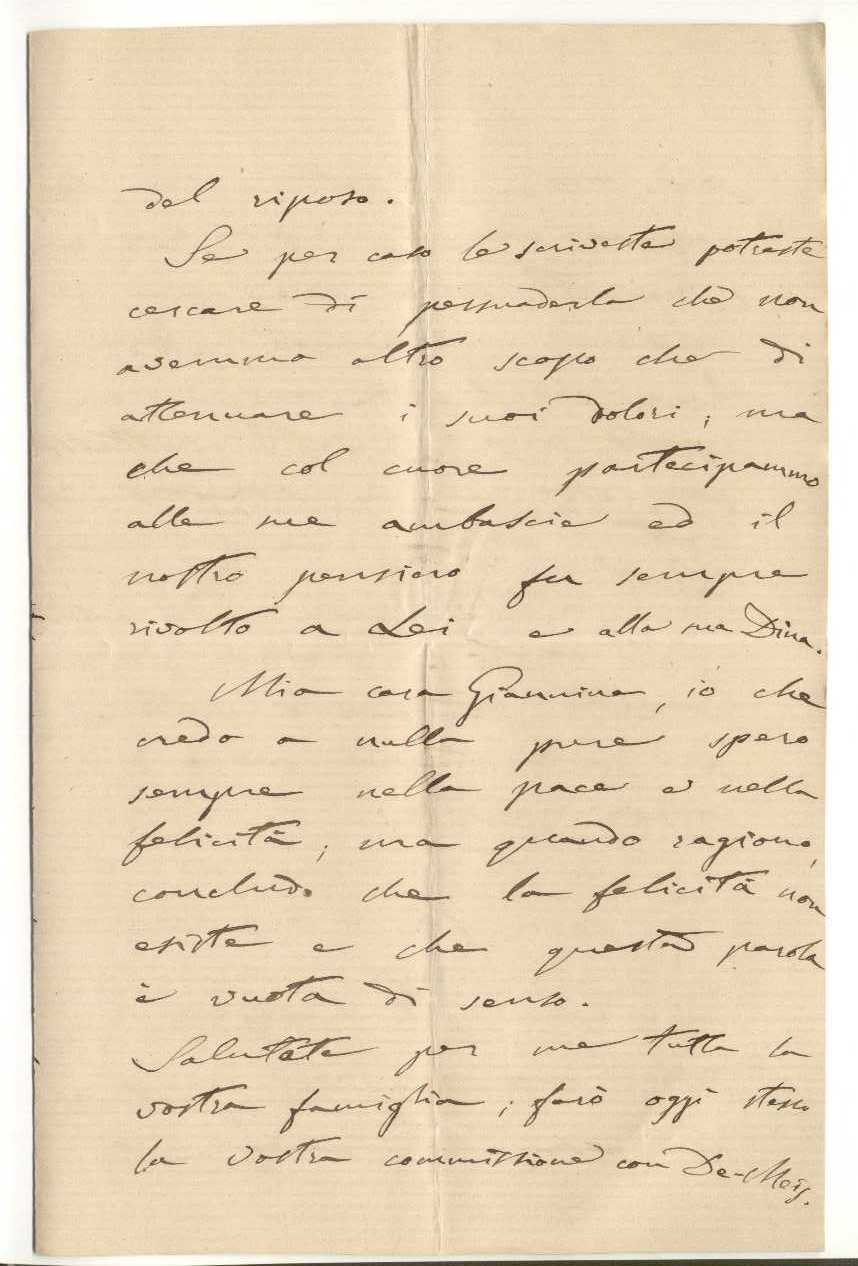 del riposo.
Se per caso le scriveste potreste
cercare di persuaderla che non
avemmo altro scopo che di
attenuare i suoi dolori; ma
che col cuore partecipammo
alle sue ambascie ed il
nostro pensiero fu sempre
rivolto a Lei e alla sua Dina.
Mia cara Giannina, io che
credo a nulla pure spero
sempre nella pace e nella
felicità; ma quando ragiono,
concludo che la felicità non
esiste e che questa parola
è vuota di senso.
Salutate per me tutta la
vostra famiglia; farò oggi stesso
la vostra commissione con De-Meis.